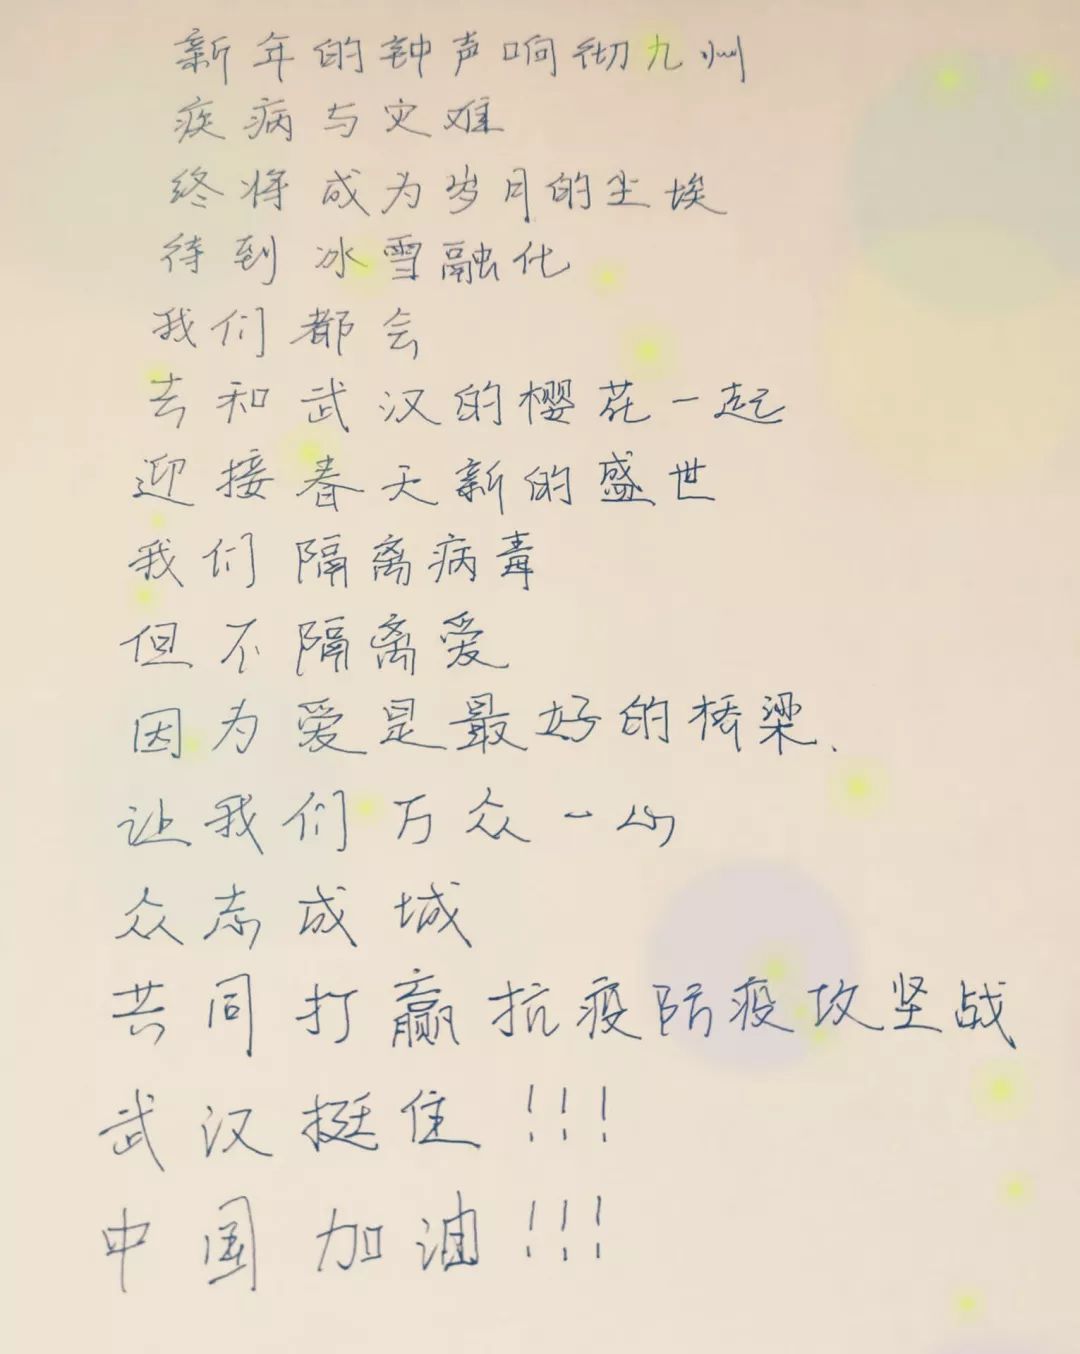 新年的钟声响彻九州
疾病与灾难
终将成为岁月的尘埃
待到冰雪融化
我们都会
去和武汉的樱花一起
迎接春天新的盛世
我们隔离病毒
但不隔离爱
因为爱是最好的桥梁、
让我们万众一心
众志成城
共同打赢抗疫防疫攻坚战
武汉挺住!!!
中国加油!!!